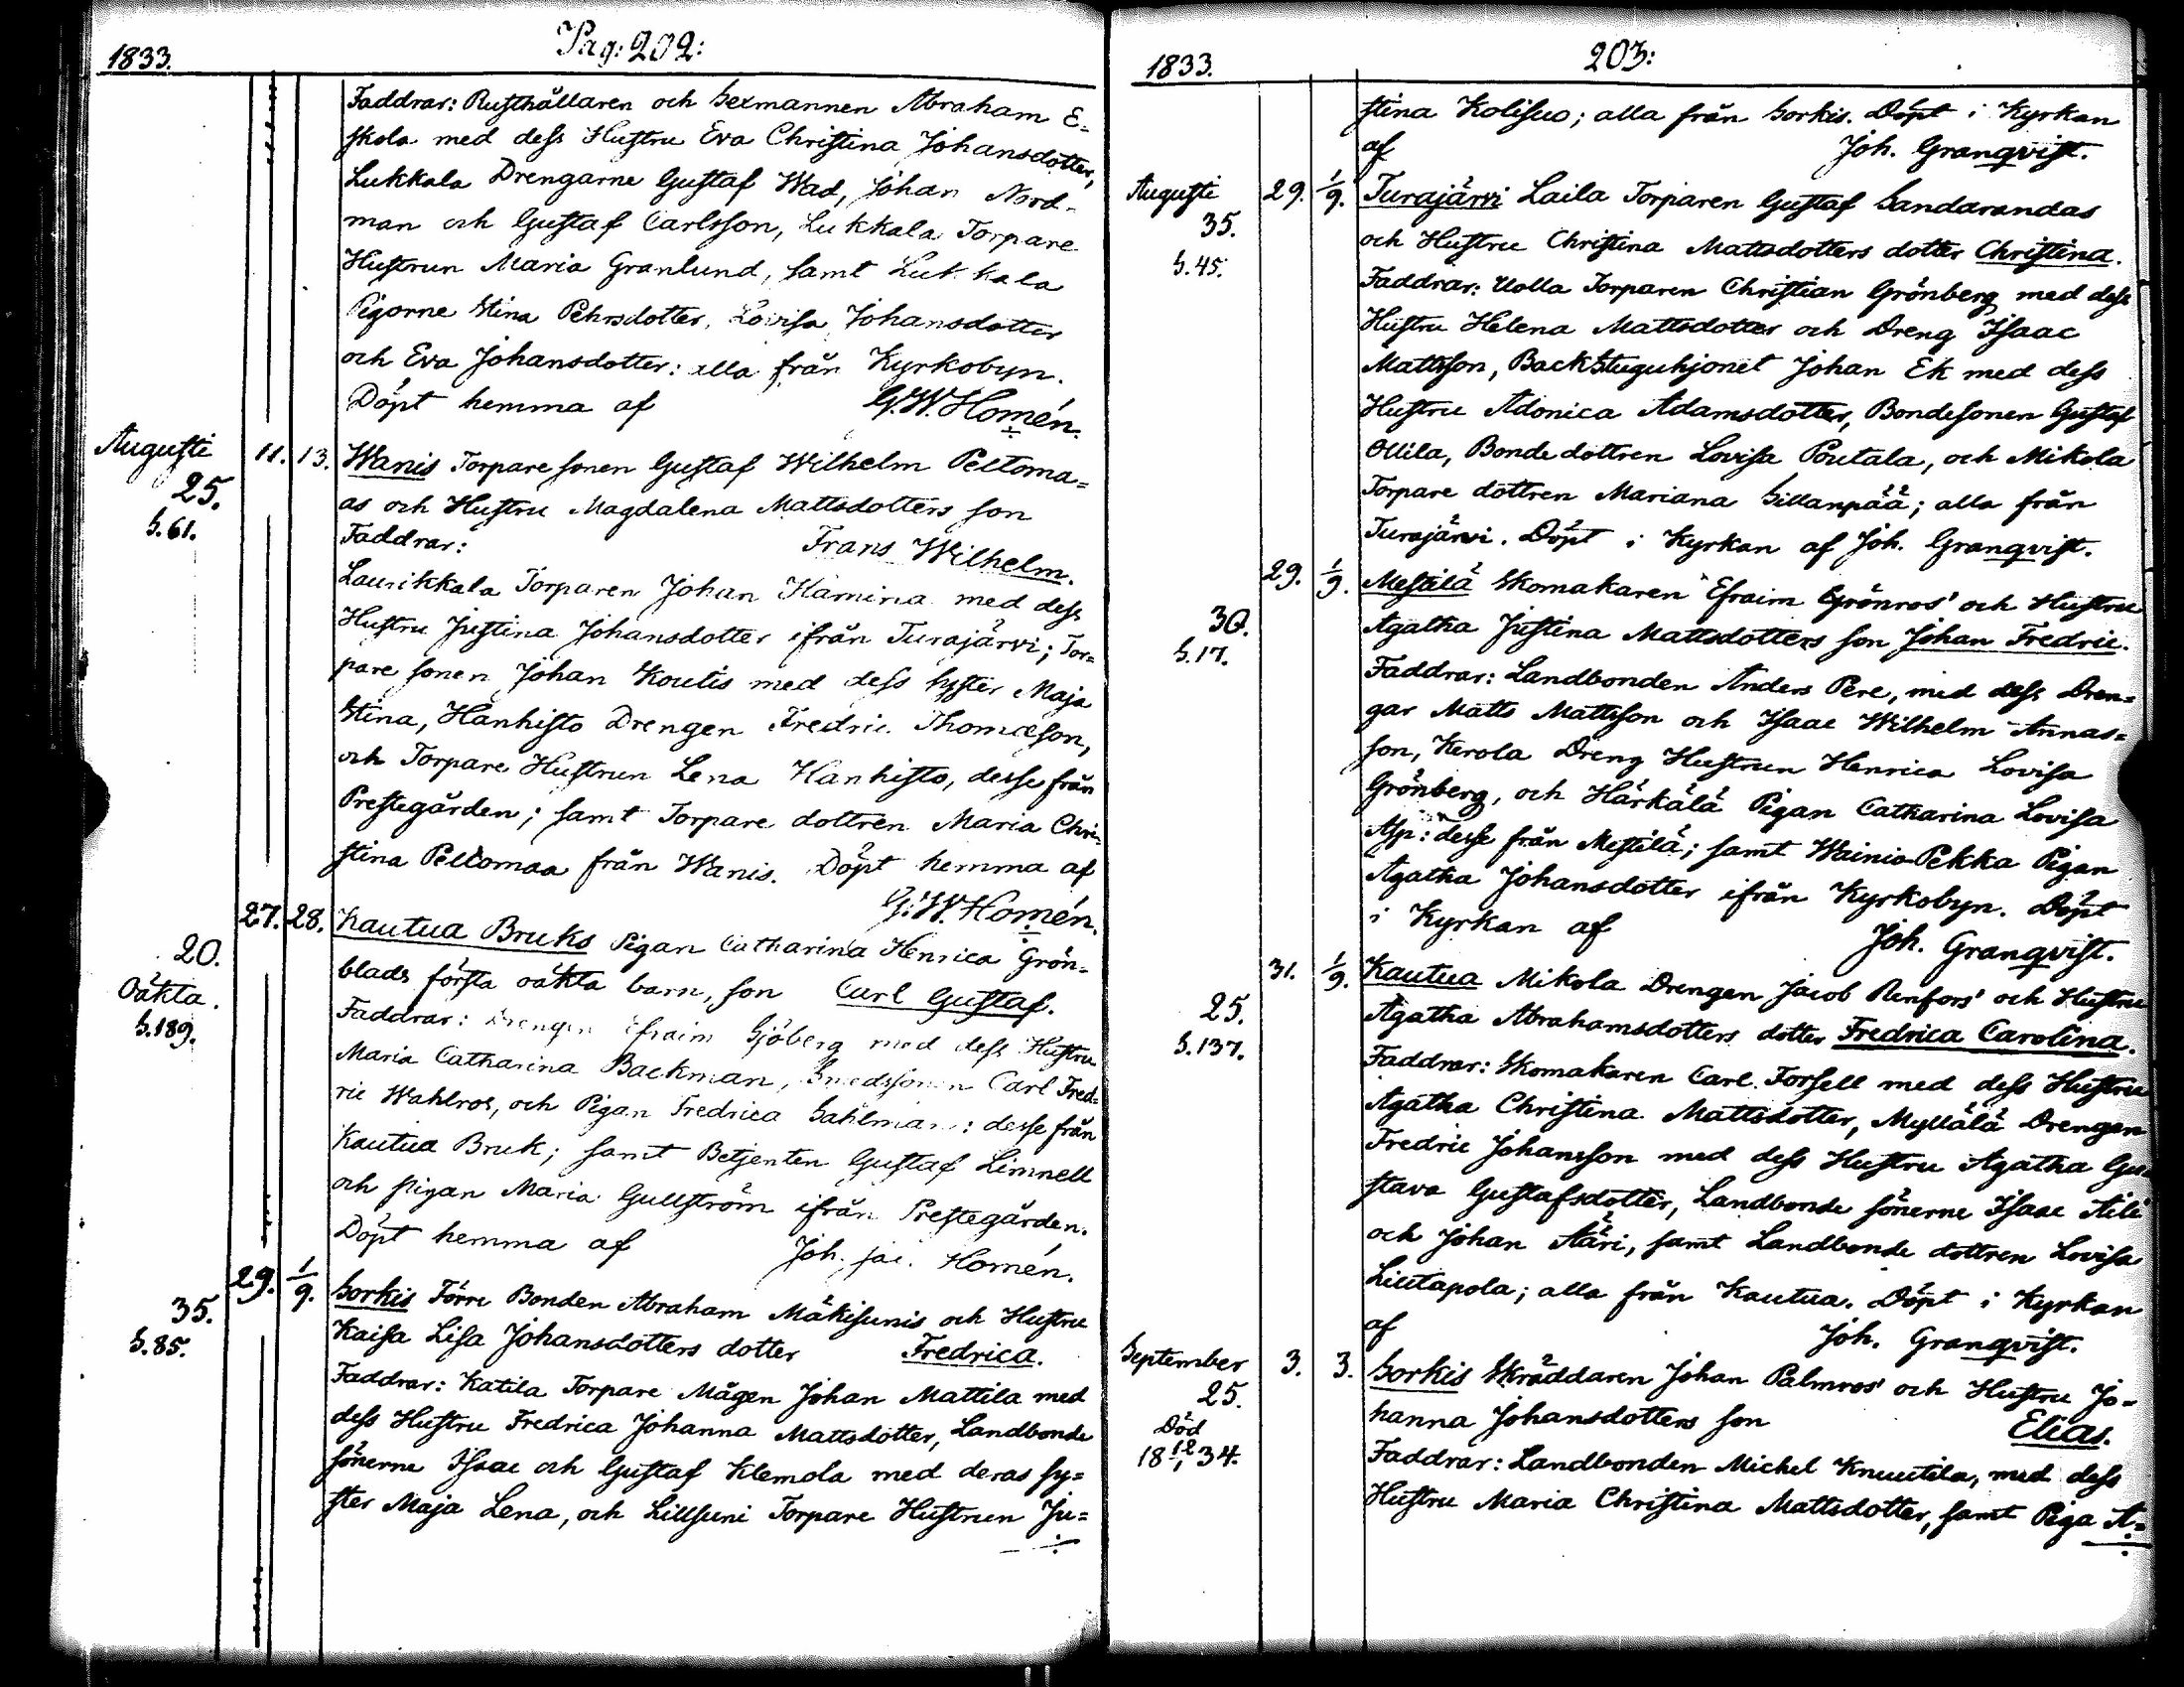 Pag: 202:
1833.
Faddrar: Rusthållaren och Sexmannen Abraham E=
skola med dess Hustru Eva Christina Johansdotter,
Lukkala Drengarne Gustaf Wad, Johan Nord-
man och Gustaf Carlsson, Lukkala Torpare
Hustrun Maria Granlund, samt Lukkala
Pigorne Stina Pehrsdotter, Lovisa Johansdotter
och Eva Johansdotter: alla från Kyrkobyn.
Döpt hemma af G.W. Homén.
Augusti 11. 13. Wanis Torpare sonen Gustaf Wilhelm Peltoma=
25.
as och Hustru Magdalena Mattsdotters son
S.61.
Faddrar: Frans Wilhelm.
Laurikkala Torparen Johan Kamina med dess
Hustru Justina Johansdotter ifrån Turajärvi; Tor=
pare sonen Johan Koutis med dess syster Maja
Stina, Hanhisto Drengen Fredric Thomæson,
och Torpare Hustrun Lena Hanhisto, desse från
Prestegården; samt Torpare dottren Maria Chri=
stina Peltomaa från Wanis. Döpt hemma af
G.W. Homén.
27. 28. Kautua Bruks Pigan Catharina Henrica Grön=
20.
blads första oäkta barn, son Carl Gustaf.
Oäkta.
S.189.
Faddrar: Drengen Efraim Sjöberg med dess Hustru
Maria Catharina Backman, Smedssonen Carl Fred=
ric Wahlros, och Pigan Fredrica Sahlman: desse från
Kautua Bruk; samt Betjenten Gustaf Limnell
och pigan Maria Gullström ifrån Prestegården.
Döpt hemma af Joh. Jac. Homén.
29. 1/9. Sorkis Förre Bonden Abraham Mäkisunis och Hustru
35.
Kaisa Lisa Johansdotters dotter Fredrica.
S.85.
Faddrar: Katila Torpare Mågen Johan Mattila med
dess Hustru Fredrica Johanna Mattsdotter, Landbonde
sönerne Isaac och Gustaf Klemola med deras sy=
ster Maja Lena, och Lillsuni Torpare Hustrun Ju=
203:
1833.
stina Kolisuo; alla från Sorkis. Döpt i Kyrkan
af Joh. Granqvist.
Augusti 29. 1/9. Turajärvi Laila Torparen Gustaf Sandarandas
35.
och Hustru Christina Mattsdotters dotter Christina.
S.45.
Faddrar: Uolla Torparen Christian Grönberg med dess
Hustru Helena Mattsdotter och Dreng Isaac
Mattsson, Backstuguhjonet Johan Ek med dess
Hustru Adonica Adamsdotter, Bondesonen Gustaf
Ollila, Bonde dottren Lovisa Poutala, och Mikola
Torpare dottren Mariana Sillanpää; alla från
Turajärvi. Döpt i Kyrkan af Joh. Granqvist.
29. 1/9. Mestilä Skomakaren Efraim Grönros' och Hustru
30.
Agatha Justina Mattsdotters son Johan Fredric.
S.17.
Faddrar: Landbonden Anders Pere, med dess Dren=
gar Matts Mattsson och Isaac Wilhelm Annas=
son, Kerola Dreng Hustrun Henrica Lovisa
Grönberg, och Härkälä Pigan Catharina Lovisa
Asp: desse från Mestilä; samt Wainio-Pekka Pigan
Agatha Johansdotter ifrån Kyrkobyn. Döpt
i Kyrkan af Joh. Granqvist.
31. 1/9. Kautua Mikola Drengen Jacob Renfors' och Hustru
25.
Agatha Abrahamsdotters dotter Fredrica Carolina.
S.137.
Faddrar: Skomakaren Carl Forsell med dess Hustru
Agatha Christina Mattsdotter, Myllälä Drengen
Fredric Johansson med dess Hustru Agatha Gu=
stava Gustafsdotter, Landbonde sönerne Isaac Aili
och Johan Ääri, samt Landbonde dottren Lovisa
Liutapola; alla från Kautua. Döpt i Kyrkan
af Joh. Granqvist.
September 3. 3. Sorkis Skräddaren Johan Palmros' och Hustru Jo=
25.
hanna Johansdotters son Elias.
Död
18 12/1 34.
Faddrar: Landbonden Michel Knuutila, med dess
Hustru Maria Christina Mattsdotter, samt Piga A=